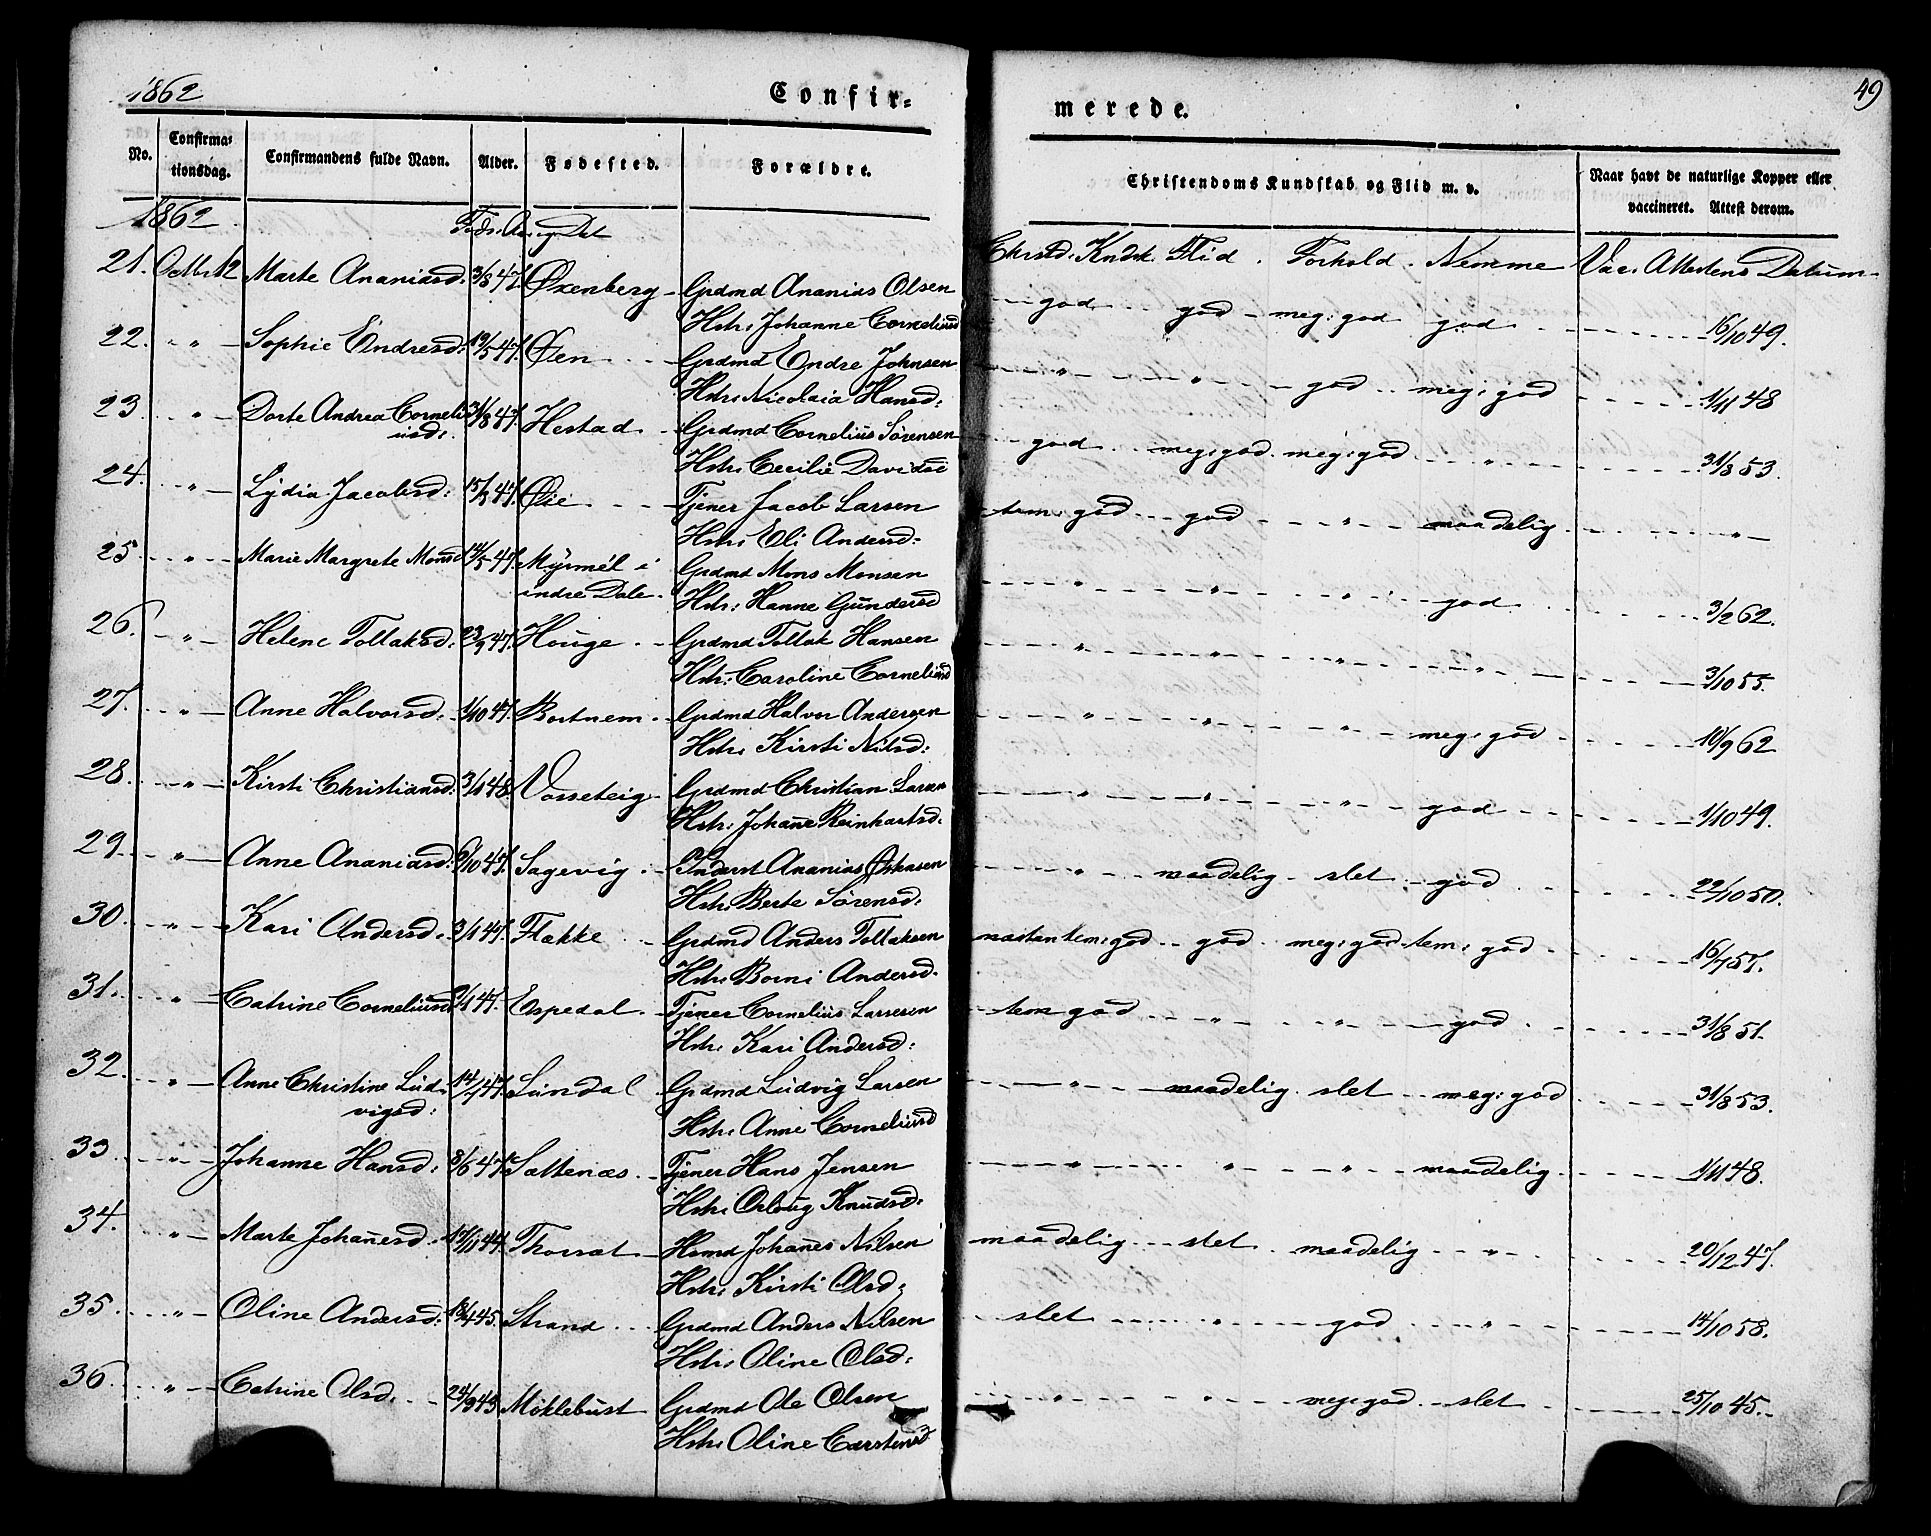 1862
Confir=
No.
Confirma=
tionsdag.
Confirmandens fulde Navn.
Alder.
Fødested.
Forældre.
1862
Føds. Aar og Dat
21. Octbr 12 Marte Ananiasd: 3/8 47. Øxenberg Grdmd Ananias Olsen
Hstr: Johanne Corneliusd
22. " " Sophie Endresd: 19/5 47. Øen Grdmd Endre Johnsen
Hstr: Nicolaia Hansd:
23. " Dorte Andrea Corneli 31/8 47. Hestad Grdmd Cornelius Sørensen
usd: Hstr: Cecilie Davidsd
24. " Lydia Jacobsd: Øie Tjener Jacob Larsen
Hstr: Eli Andersd:
25. " Marie Margrete Monsd Myrmél i Grdmd Mons Monsen
indre Dale. Hstr: Hanne Gundersd
26. " Helene Tollaksd. 23/9 47. Houge Grdmd Tollak Hansen
Hstr: Caroline Corneliusd
27. " Anne Halvorsd. 1/10 47. Bortnem Grdmd Halvor Andersen
Hstr: Kirsti Nilsd:
28. " Kirsti Christiansd: 3/1 48. Vosseteig Grdmd Christian Larsen
Hstr: Johane Reinhartsd.
29. " Anne Ananiasd: 9/10 47. Sagevig Inderst Ananias
Hstr: Berte Sørensd.
30. " Kari Andersd. 3/1 47. Flekke Grdmd Anders Tollaksen
Hstr: Borni Andersd.
31. " Catrine Corneliusd Espedal Tjener Cornelius Larsen
Hstr: Kari Andersd:
32. " Anne Christine Lud= Lundal Grdmd Ludvig Larsen
vigsd: Hstr: Anne Corneliusd
33. " Johanne Hansd: 8/6 47. Sættenæs Tjener Hans Jensen
Hstr: Oloug Knudsd:
34. " Marte Johanesd: Hsmd Johanes Nilsen
Hstr: Kirsti Olsd:
35. " Oline Andersd: 18/4 45. Strand Grdmd Anders Nilsen
Hstr: Oline Olsd:
36. " Catrine Olsd. Møklebust Grdmd Ole Olsen
Hstr: Oline Carstensd
49
merede.
Christendoms Kundskab og Flid m. v.
Naar havt de naturlige Kopper eller
vaccineret. Attest derom.
Christd. Kndsk. Flid. Forhold. Nemme Vac. Attestens Datum
god god meg: god god 16/10 49.
" " god meg: god 1/11 48
god meg: god meg: god " 31/8 53.
tem: god god " maadelig "
" " " god 3/2 62.
" " " " 3/10 55.
" " meg: god 10/9 62
" " " god 1/10 49.
" maadelig slet god 22/10 50.
næsten tem: god god meg: god tem: god 16/7 57.
tem god " " god 31/8 51.
" maadelig slet meg: god 31/8 53.
" " " maadelig 1/11 48.
maadelig slet maadelig " 20/12 47.
slet " god " 14/10 58.
" " meg: god slet 25/10 45.